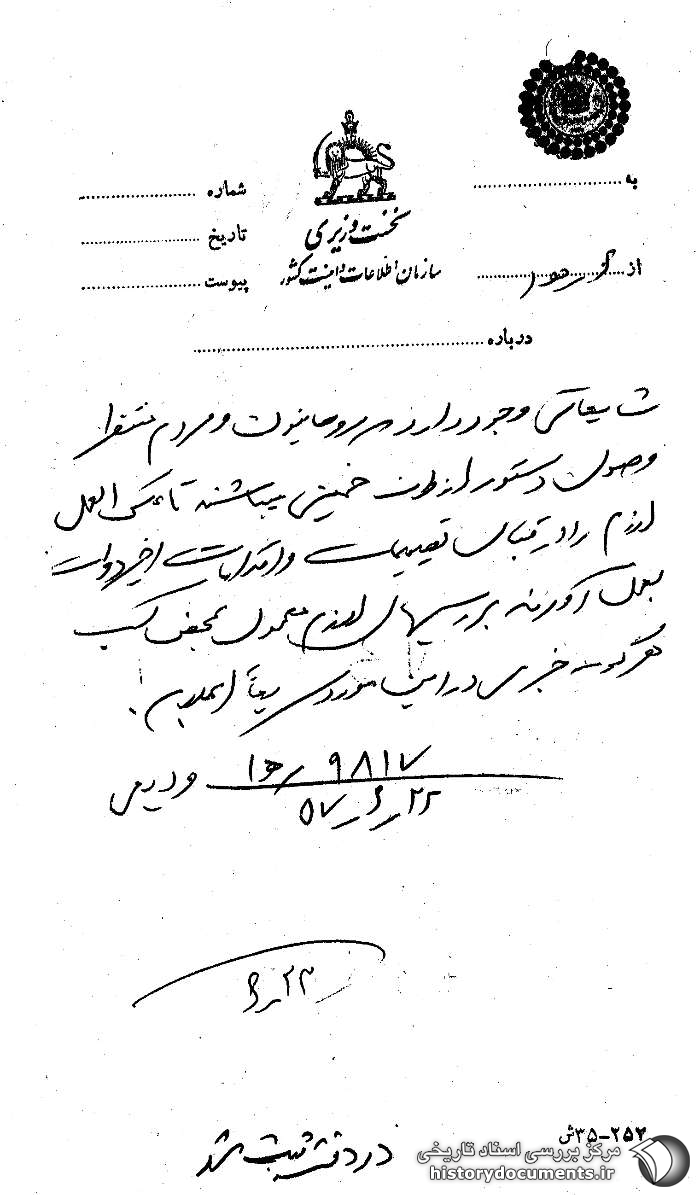 به ........................
شماره ........................
نخست وزیری
تاریخ ........................
سازمان اطلاعات و امنیت کشور
از ........................
پیوست ........................
درباره ........................
شایعاتی وجود دارد روحانیون و مردم منتظر
وصول دستور از طرف خمینی میباشند تا عکس العمل
لازم را در قبال تصمیمات و اقدامات اخیر دولت
بعمل آورند بررسیهای لازم معمول بمحض کسب
هرگونه خبری در این مورد سریعاً اعلام
۹۸۱۷ / ه ۱
۲۲ / ۶ / ۵۷
۲۳ / ۶
در دفتر ثبت شد
۲۵۲-۳۵ش
مرکز بررسی اسناد تاریخی
historydocuments.ir